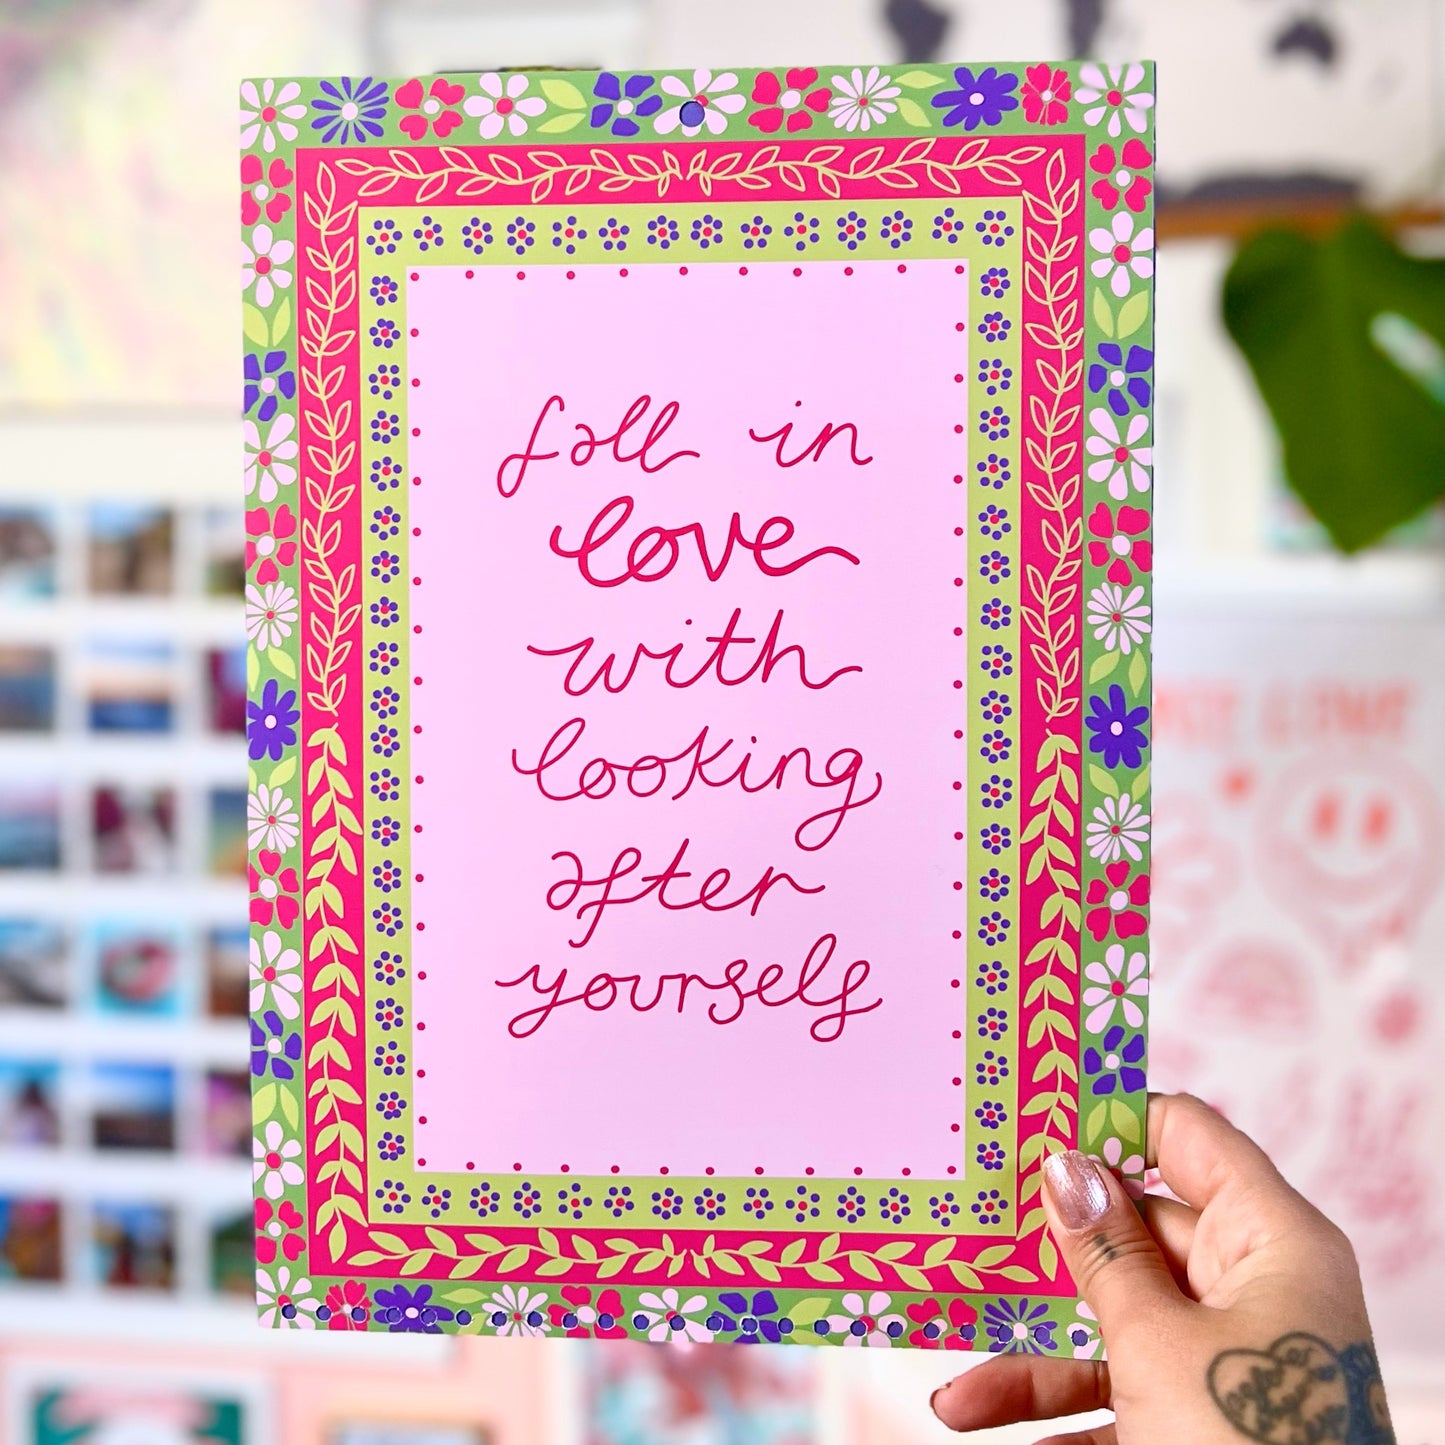 fall in
love
with
looking
after
yourself